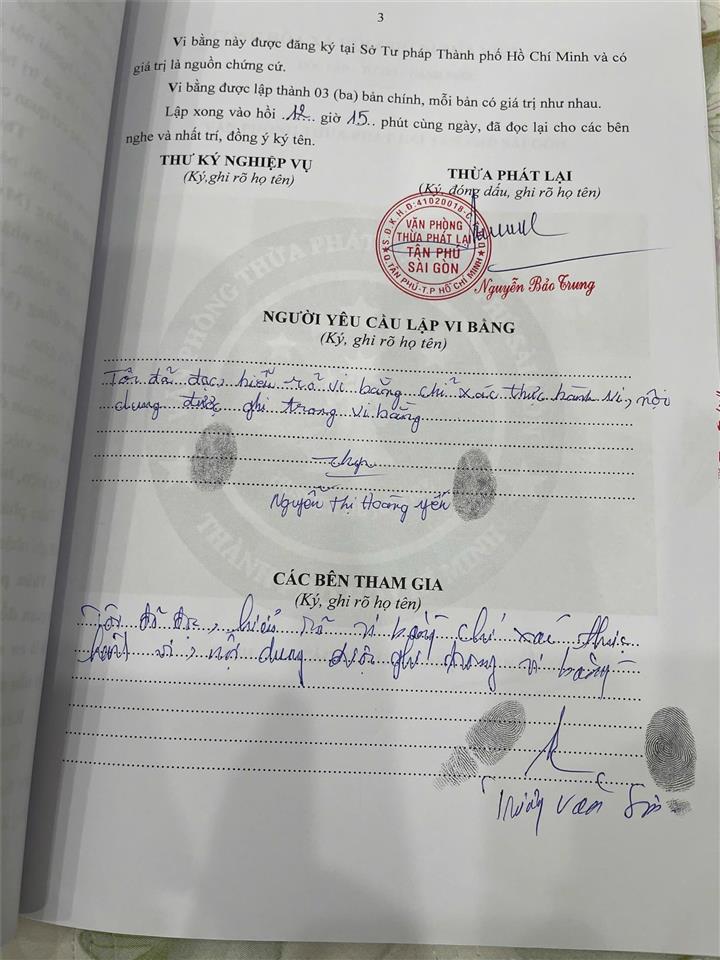 3
Vi bằng này được đăng ký tại Sở Tư pháp Thành phố Hồ Chí Minh và có
giá trị là nguồn chứng cứ.
Vi bằng được lập thành 03 (ba) bản chính, mỗi bản có giá trị như nhau.
Lập xong vào hồi 12 giờ 15 phút cùng ngày, đã đọc lại cho các bên
nghe và nhất trí, đồng ý ký tên.
THƯ KÝ NGHIỆP VỤ
(Ký,ghi rõ họ tên)
THỪA PHÁT LẠI
(Ký, đóng dấu, ghi rõ họ tên)
S.Đ.K.H.Đ:41020018
VĂN PHÒNG
THỪA PHÁT LẠI
TÂN PHÚ
SÀI GÒN
Q.TÂN PHÚ-T.P HỒ CHÍ MINH
Nguyễn Bảo Trung
NGƯỜI YÊU CẦU LẬP VI BẰNG
(Ký, ghi rõ họ tên)
Tôi đã đọc, hiểu rõ vi bằng chỉ xác thực hành vi, nội
dung được ghi trong vi bằng
Nguyễn Thị Hoàng Yến
CÁC BÊN THAM GIA
(Ký, ghi rõ họ tên)
Tôi đã đọc, hiểu rõ vi bằng chỉ xác thực
hành vi, nội dung được ghi trong vi bằng